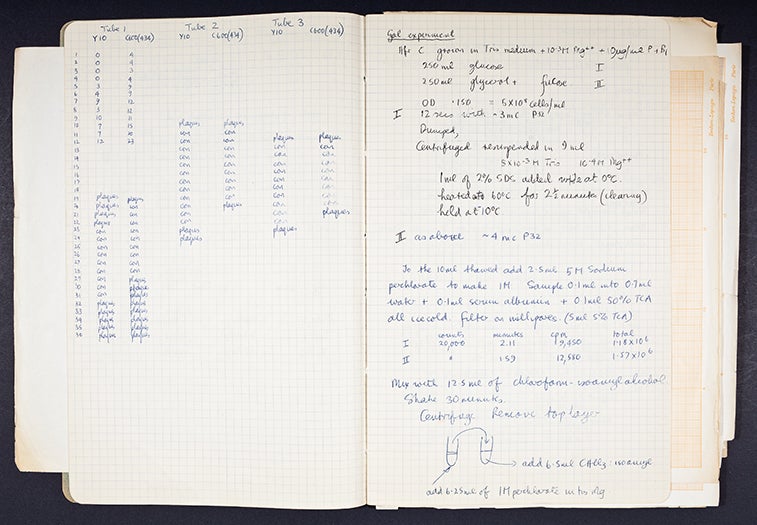 Tube 1 Tube 2 Tube 3
Y10 C600(434) Y10 C600(434) Y10 C600(434)
1 0 4
2 0 4
3 0 3
4 0 4
5 3 4
6 4 9
7 9 12
8 3 12
9 10 11
10 7 13 plaques plaques
11 9 10 con con
12 12 23 con con plaques plaques
13 con con con con
14 con con con con
15 con con con con
16 con con con con
17 con con con con
18 con con con con
19 plaques plaques con con con con
20 plaques con con plaques con con
21 plaques con con con plaques
22 plaques con con con
23 con con plaques plaques
24 con con plaques
25 con con
26 con con
27 con con
28 con con
29 con plaques
30 con plaques
31 con plaques
32 plaques plaques
33 plaques plaques
34 plaques plaques
35 plaques plaques
36 plaques plaques
Gal experiment
Hfr C grown in Tris medium + 10⁻³M Mg⁺⁺ + 10µg/ml P + B₁
250 ml glucose I
250 ml glycerol + fucose II
OD .150 = 5X10⁸ cells/ml
I 12 secs with ~3mc P32
Dumped,
Centrifuged resuspended in 9 ml
5X10⁻³M Tris 10⁻⁴M Mg⁺⁺
1 ml of 2% SDS added while at 0°C
heated to 60°C for 2½ minutes (clearing)
held at 10°C
II as above ~4mc P32
To the 10ml thawed add 2.5ml 5M Sodium
perchlorate to make 1M. Sample 0.1ml into 0.7ml
water + 0.1ml serum albumin + 0.1ml 50% TCA
all icecold. filter on millipores. (5ml 5% TCA)
counts minutes cpm total
I 20,000 2.11 9,450 1.18 X10⁶
II " 1.59 12,580 1.57 X10⁶
Mix with 12.5ml of chloroform-isoamyl alcohol.
Shake 30 minutes.
Centrifuge Remove top layer
add 6.5ml CHCl₃: isoamyl
add 6.25ml of 1M perchlorate in tris mg